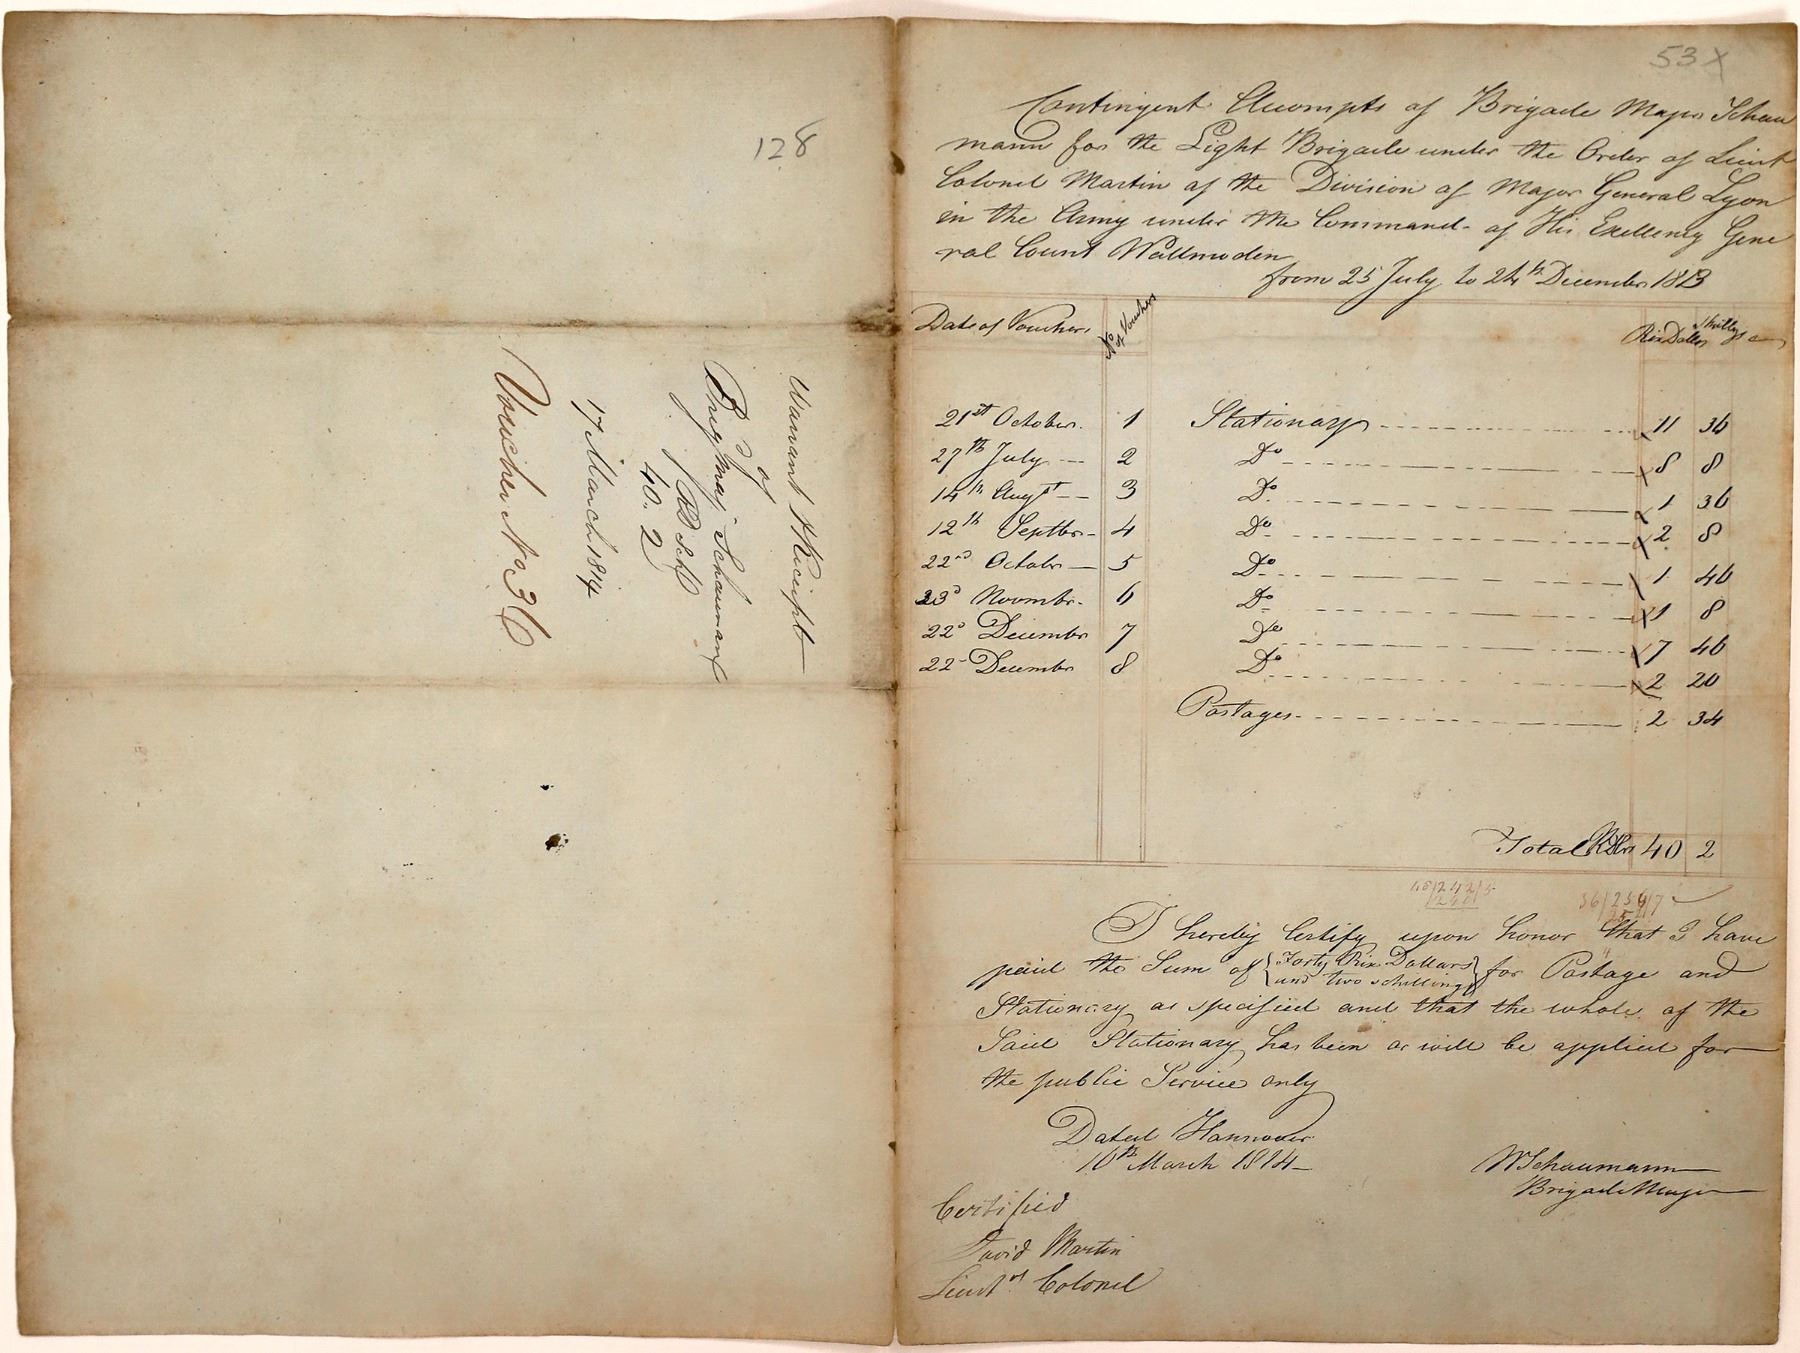 128
Warrant & Receipt
of
Brig Maj Schaumann
RD Schl
40. 2
17 March 1814
Voucher No 36
53 X
Contingent Accompts of Brigade Major Schau
mann for the Light Brigade under the Order of Lieut
Colonel Martin of the Division of Major General Lyon
in the Army under the Command of His Exellency Gene
ral Count Wallmoden
from 25 July to 24th December 1813
Date of Voucher No of Vouchers Rix Dollars Shillgs
21st October. 1 Stationary 11 36
27th July 2 Do 8 8
14th Augst 3 Do 1 36
12th Septbr 4 Do 2 8
22nd October 5 Do 1 46
23d Novembr. 6 Do 1 8
22d December 7 Do 7 46
22 December 8 Do 2 20
Postages 2 34
Total RDlrs 40 2
48/242/5 36/254/7
240 25
I hereby Certify upon honor that I have
paid the Sum of {Forty Rix Dollars for Postage and
and two schillings}
Stationary as specified and that the whole of the
Said Stationary has been or will be applied for
the public Service only
Dated Hannover
10th March 1814
WSchaumann
Brigade Major
Certified
David Martin
Lieut Colonel